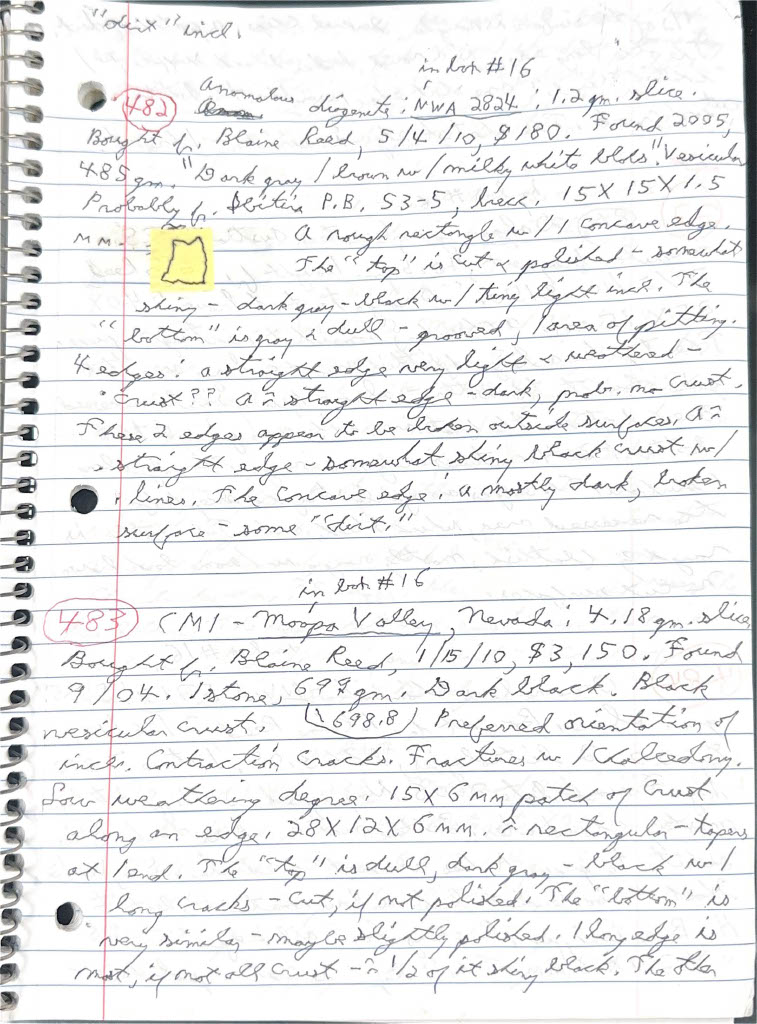 "dirt" incl.
in box #16
482 Anomalous diogenite: NWA 2824: 1.2 gm. slice.
Bought fr. Blaine Reed, 5/4/10, $180. Found 2005,
485 gm. "Dark gray/brown w/milky white blobs". Vesicular
Probably fr. P.B. S3-5, brecc. 15 X 15 X 1.5
MM. A rough rectangle w/1 concave edge.
The "top" is cut & polished - somewhat
shiny - dark gray-black w/tiny light incl. The
"bottom" is gray & dull - grooved, 1 area of pitting.
4 edges: a straight edge very light & weathered -
crust?? A ≈ straight edge - dark, prob. no crust.
These 2 edges appear to be broken outside surfaces. A ≈
straight edge - somewhat shiny black crust w/
lines. The concave edge: a mostly dark, broken
surface - some "dirt."
in box #16
483 CM1 - Moapa Valley, Nevada: 4.18 gm. slice.
Bought fr. Blaine Reed, 1/15/10, $3,150. Found
9/04. 1 stone, 699 gm. Dark black. Black
vesicular crust. 698.8 Preferred orientation of
incls. Contraction cracks. Fractures w/chalcedony.
Low weathering degree. 15 X 6 MM patch of crust
along an edge. 28 X 12 X 6 MM. ≈ rectangular - tapers
at 1 end. The "top" is dull, dark gray - black w/
long cracks - cut, if not polished. The "bottom" is
very similar - maybe slightly polished. 1 long edge is
most, if not all crust - ≈ 1/2 of it shiny black. The other